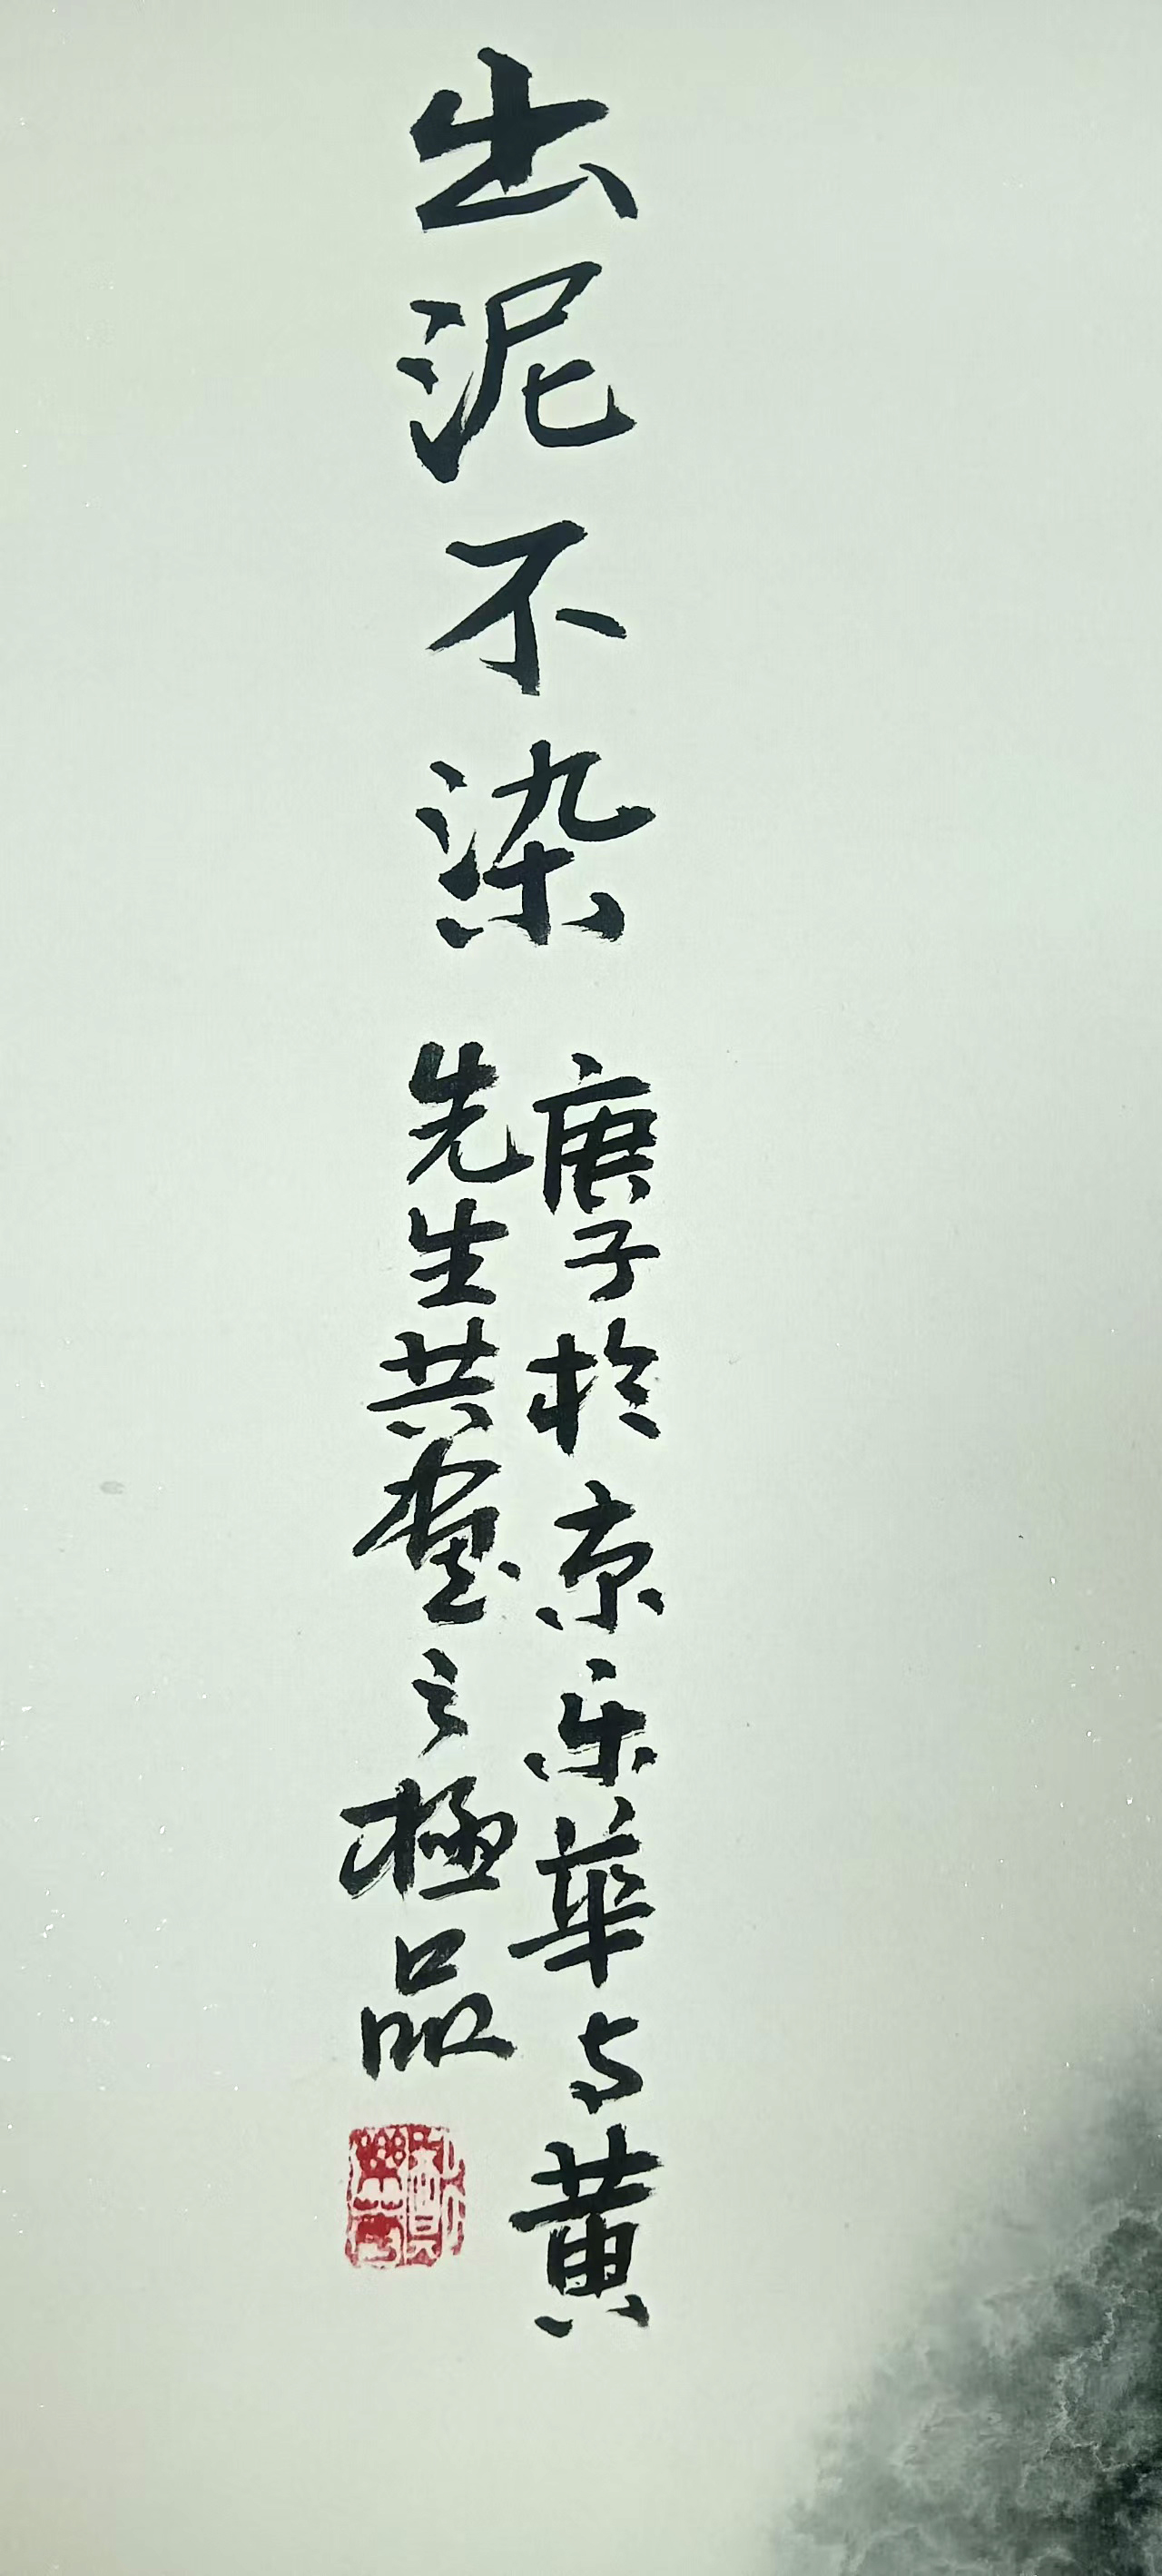 出泥不染
庚子於京乐華与黄
先生共畫之極品